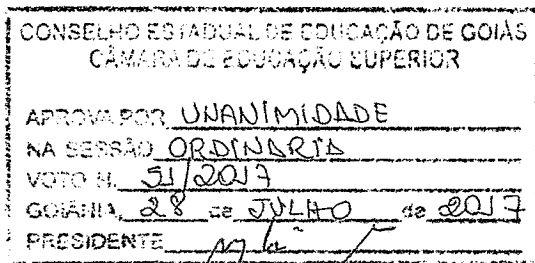 CONSELHO ESTADUAL DE EDUCAÇÃO DE GOIÁS
CÂMARA DE EDUCAÇÃO SUPERIOR
APROVA POR UNANIMIDADE
NA SESSÃO ORDINÁRIA
VOTO N. 51/2017
GOIÂNIA, 28 de JULHO de 2017
PRESIDENTE